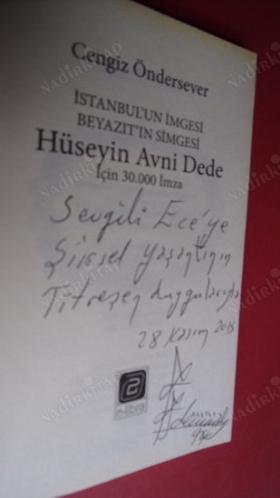 Cengiz Öndersever
İSTANBUL'UN İMGESİ
BEYAZIT'IN SİMGESİ
Hüseyin Avni Dede
İçin 30.000 İmza
Sevgili Ece'ye
Şiirsel yaşantının
Titreşen duygularıyla
28 Kasım 2015